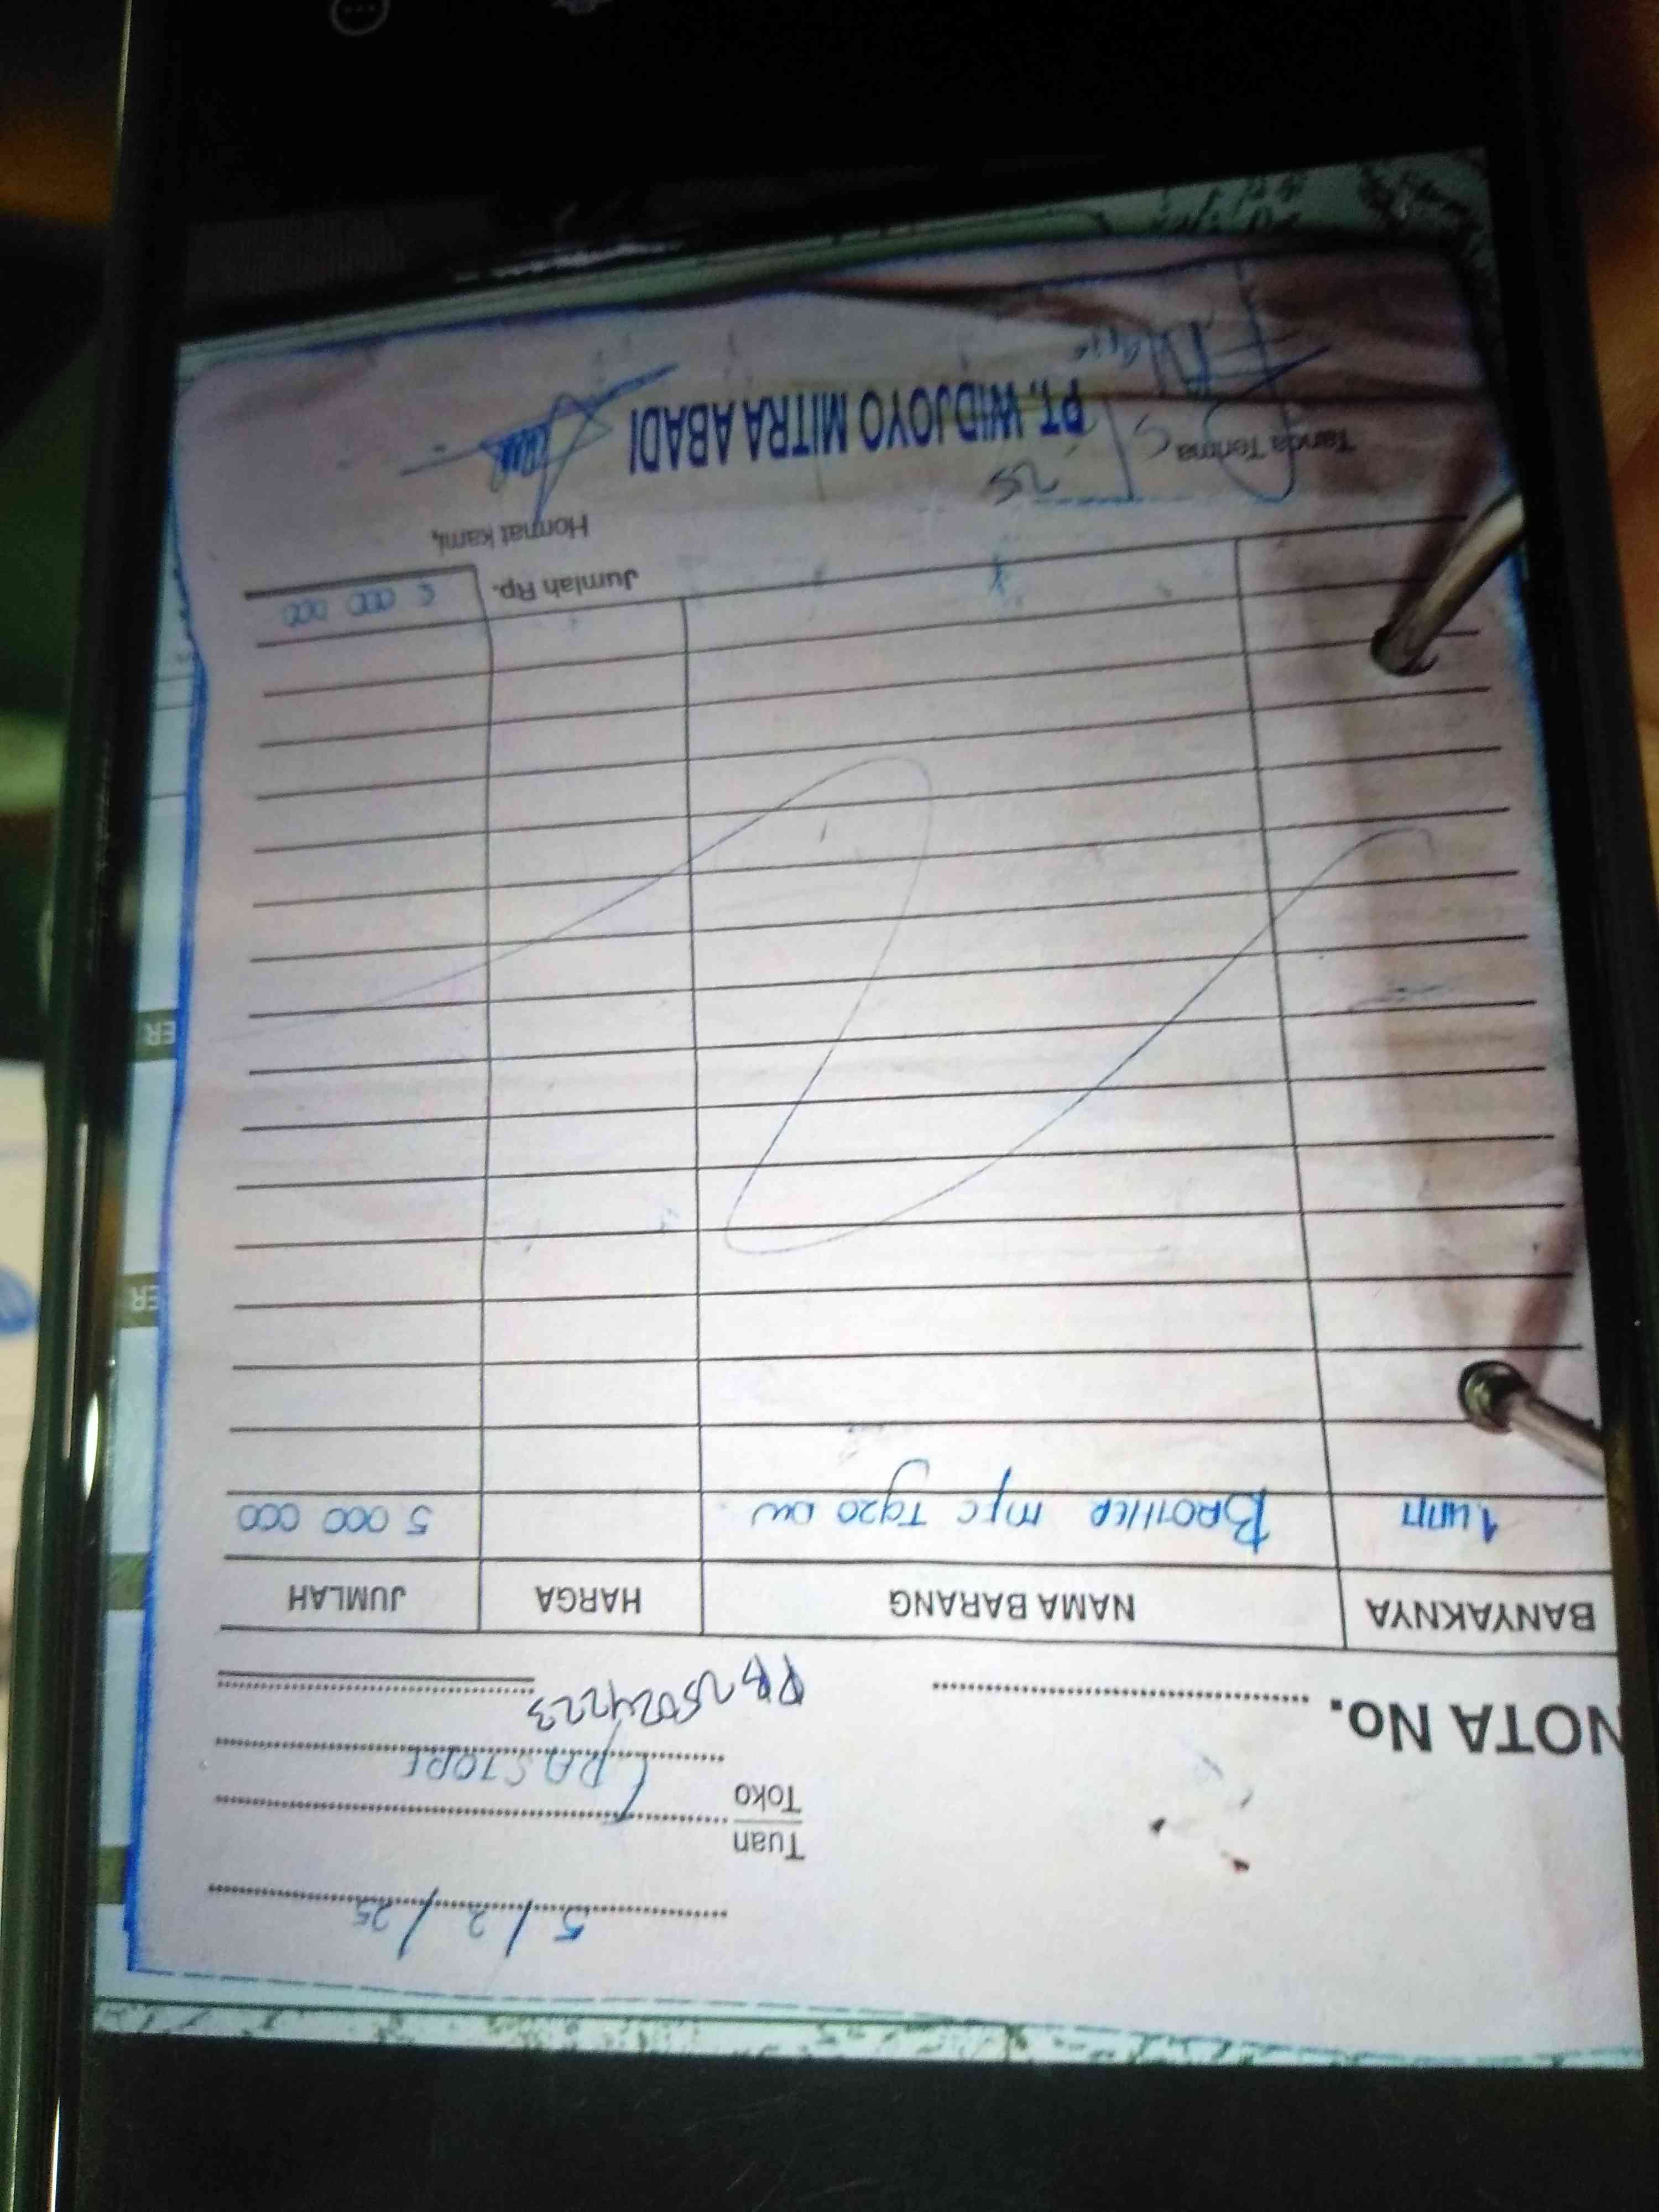 5/2/25
Tuan
Toko
ERA STORE
PB25024223
NOTA No.
BANYAKNYA NAMA BARANG HARGA JUMLAH
1 unit BROTHER MFC T920 DW 5 000 000
Jumlah Rp. 5 000 000
Tanda Terima Hormat kami,
5 25
PT. WIDJOYO MITRA ABADI
ER
ER